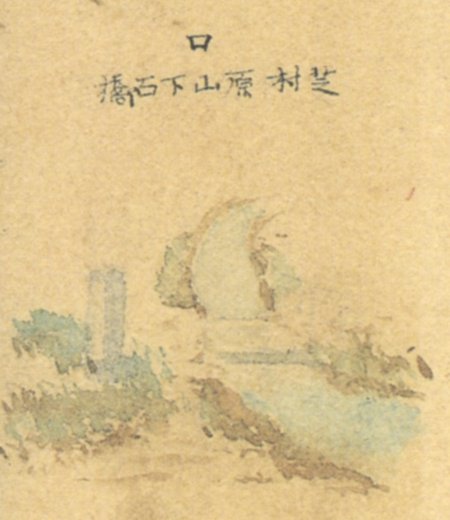 口
芝村原山下石橋